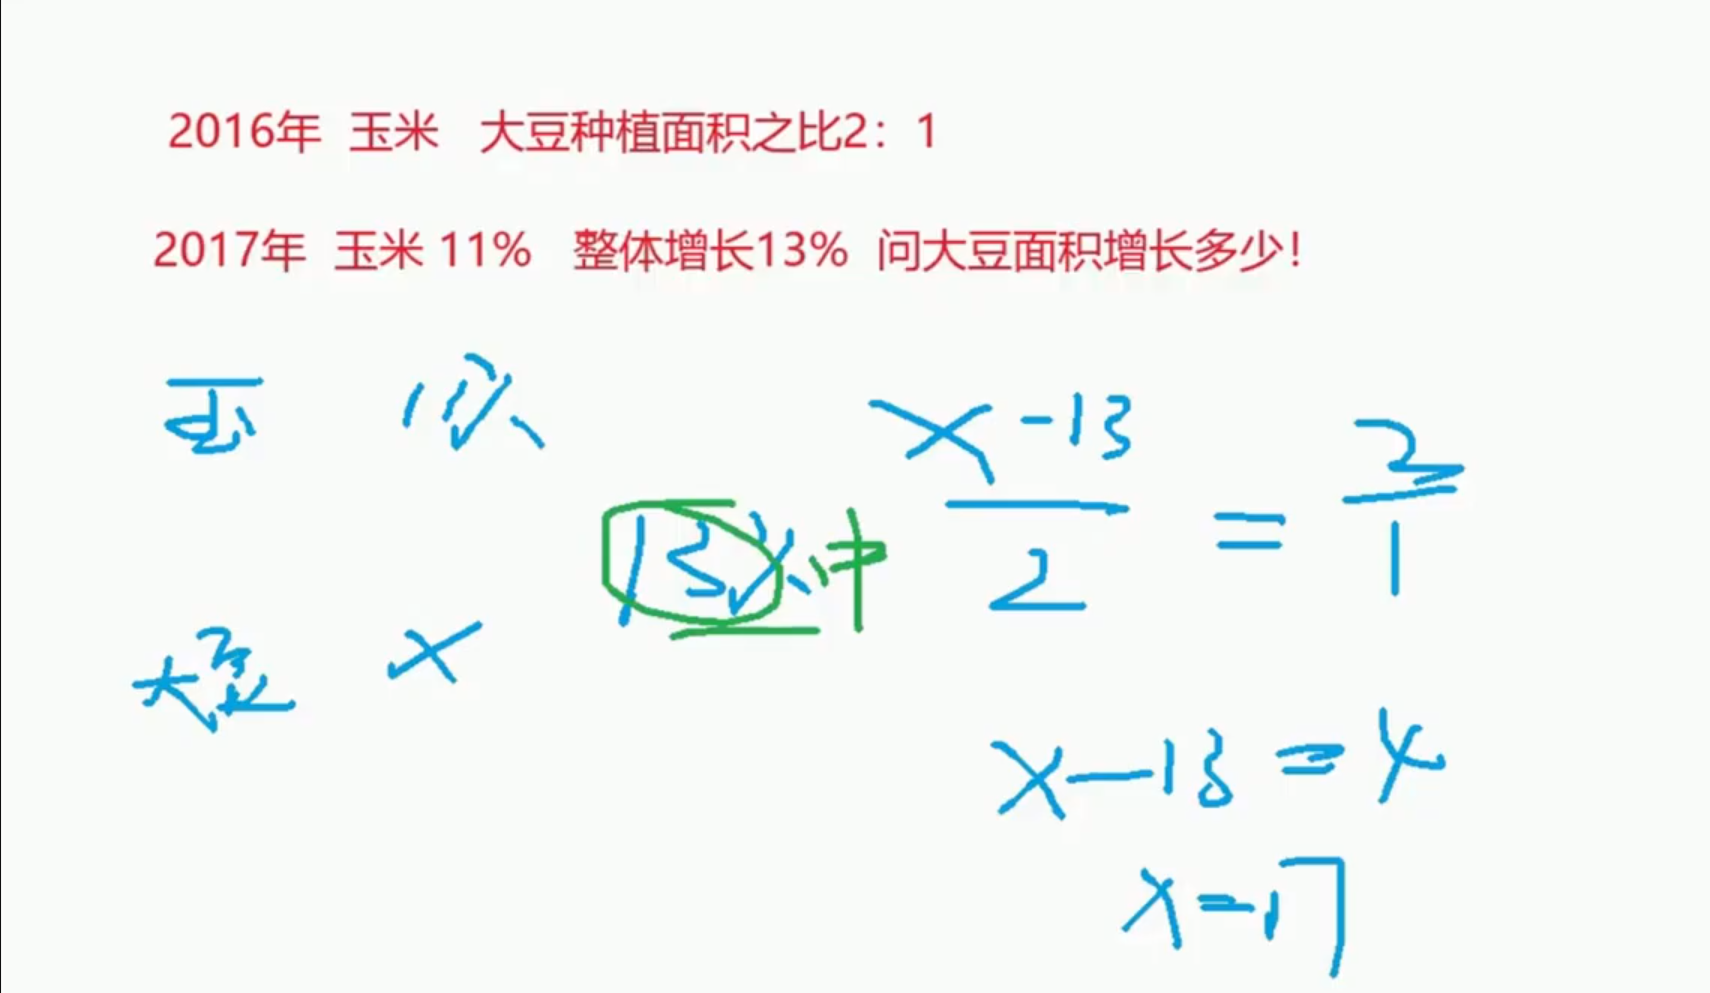 2016年 玉米 大豆种植面积之比2：1
2017年 玉米 11% 整体增长13% 问大豆面积增长多少！
玉 11%
13% 中
大豆 x
x-13
2
=
2
1
x-13=4
x=17